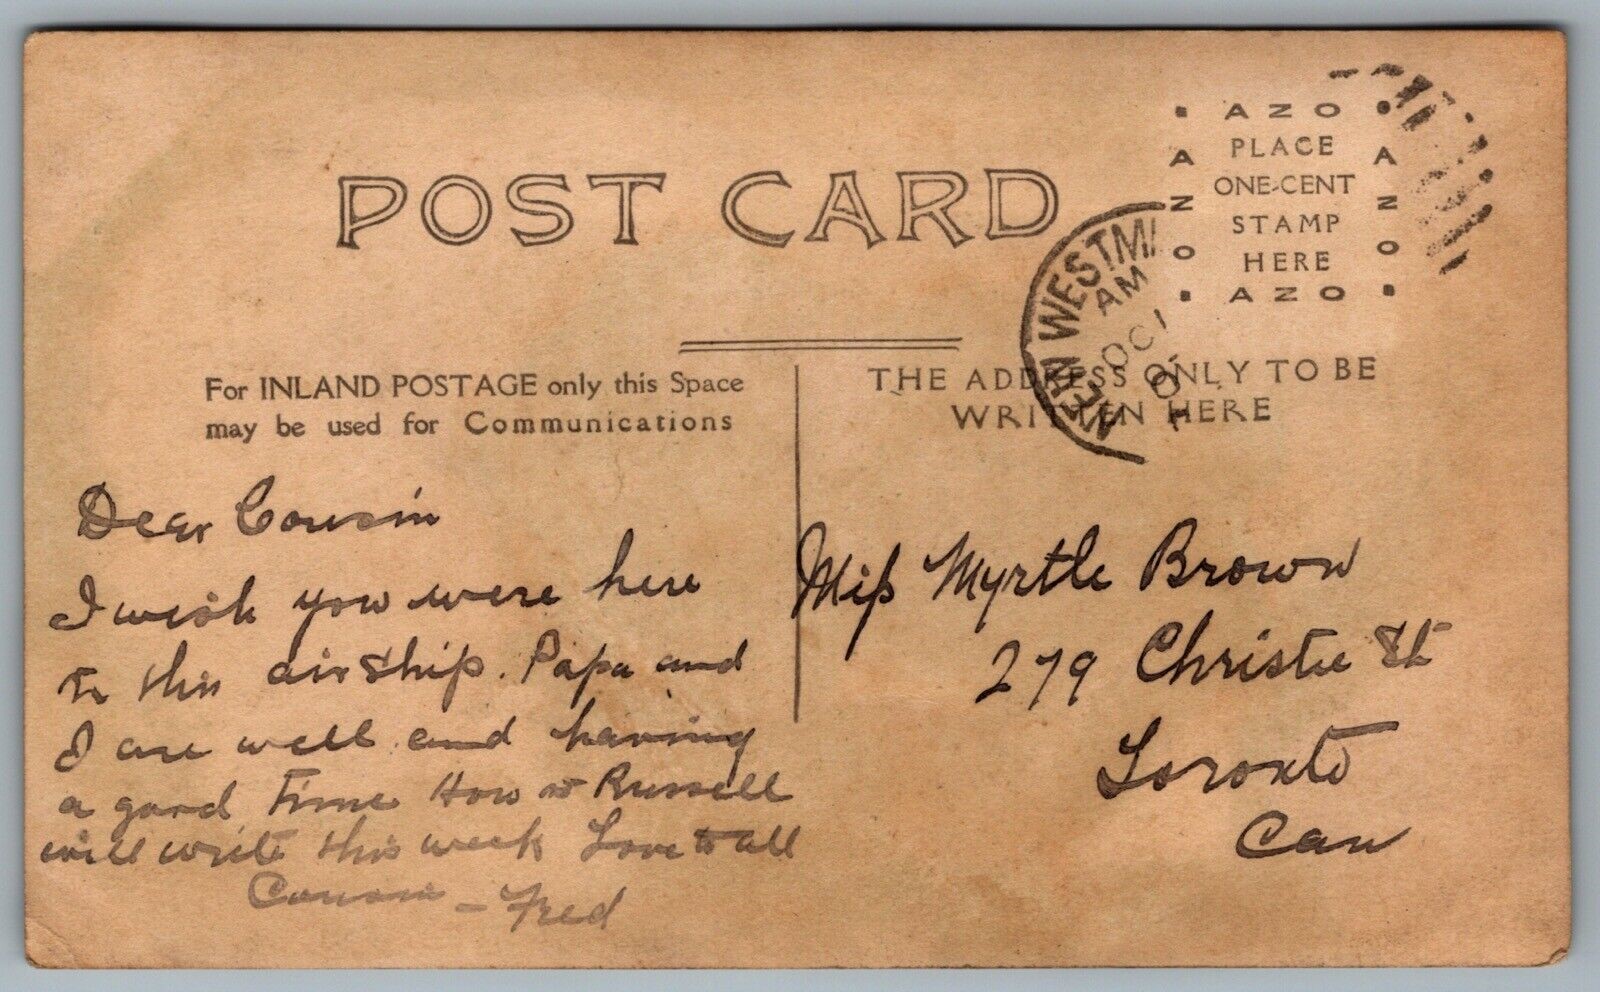 POST CARD
AZO
PLACE
ONE-CENT
STAMP
HERE
AZO
AZO
AZO
NEW WESTMI
AM
OC 1
For INLAND POSTAGE only this Space
may be used for Communications
THE ADDRESS ONLY TO BE
WRITTEN HERE
Dear Cousin
I wish you were here
to this air ship. Papa and
I are well and having
a good Time How is Russell
will write this week Love to all
Cousin - Fred
Miss Myrtle Brown
279 Christie St
Toronto
Can